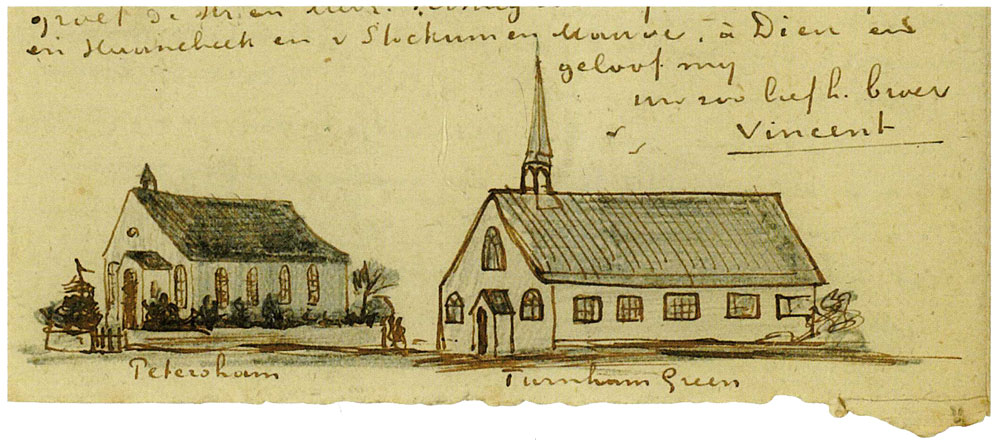 groet de
en Haanebeek en v Stockum en Mauve, à Dieu en
geloof my
uw zoo liefh. broer
Vincent
Petersham
Turnham Green